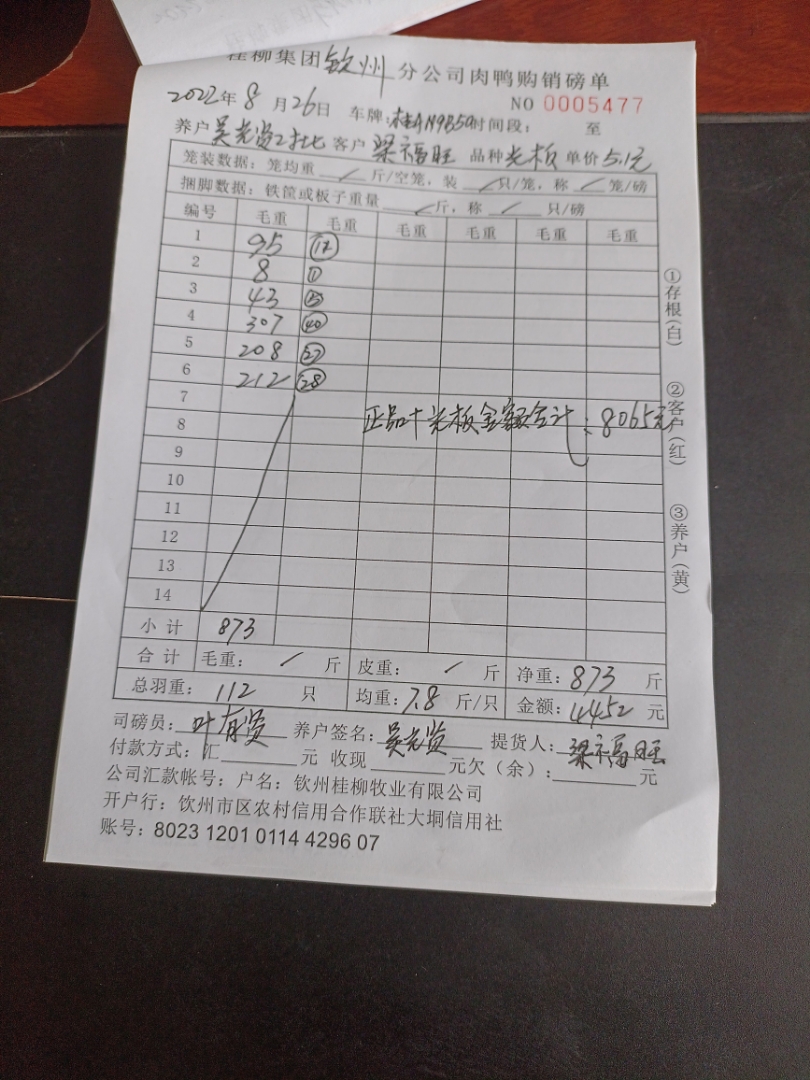 桂柳集团钦州分公司肉鸭购销磅单
NO 0005477
2022年8月26日 车牌:桂AN9B50时间段: 至
养户吴光贤2批 客户 梁福旺 品种光板 单价5.1元
笼装数据: 笼均重 / 斤/空笼, 装 / 只/笼, 称 / 笼/磅
捆脚数据: 铁筐或板子重量 / 斤, 称 / 只/磅
编号 毛重 毛重 毛重 毛重 毛重 毛重
1 95 ⑰
2 8 ①
3 43
4 307 ㊵
5 208 ㉗
6 212 ㉘
7
正品+光板金额合计: 8065元
8
9
10
11
12
13
14
小计 873
合计 毛重: / 斤 皮重: / 斤 净重: 873 斤
总羽重: 112 只 均重: 7.8 斤/只 金额: 4452 元
司磅员: 叶有贤 养户签名: 吴光贤 提货人: 梁福旺
付款方式: 汇 元 收现 元欠(余): 元
公司汇款帐号: 户名: 钦州桂柳牧业有限公司
开户行: 饮州市区农村信用合作联社大垌信用社
账号: 8023 1201 0114 4296 07
①存根(白)
②客户(红)
③养户(黄)